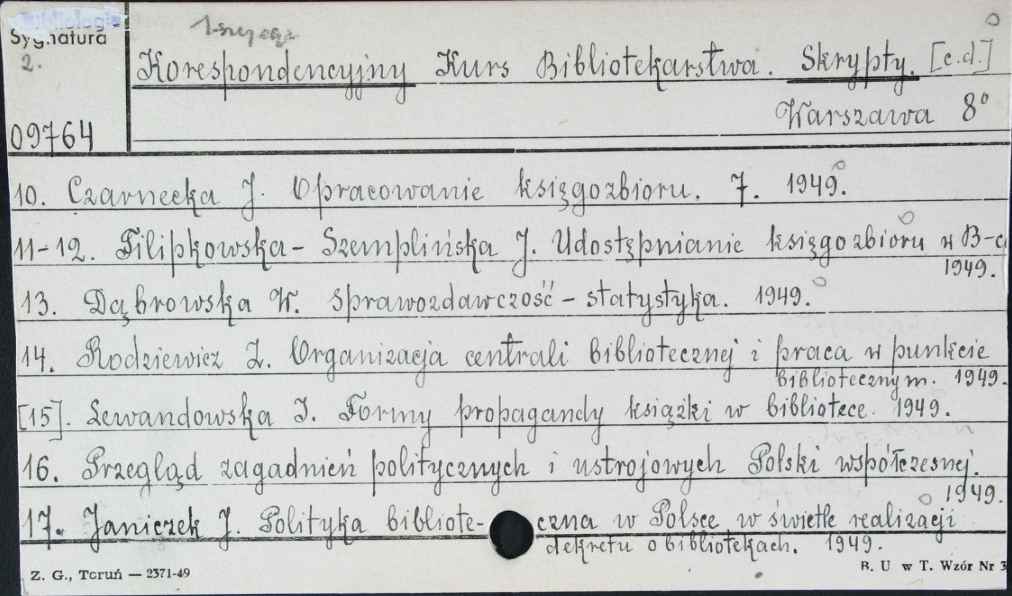 Bibliologia
Sygnatura
2.
Korespondencyjny Kurs Bibliotekarstwa. Skrypty. [c.d.]
Warszawa 8°
09764
10. Czarnecka J. Opracowanie księgozbioru. 7. 1949.
11-12. Filipkowska-Szemplińska J. Udostępnianie księgozbioru w B-c
1949.
13. Dąbrowska W. Sprawozdawczość - statystyka. 1949.
14. Rodziewicz Z. Organizacja centrali bibliotecznej i praca w punkcie
bibliotecznym. 1949.
[15]. Lewandowska I. Formy propagandy książki w bibliotece. 1949.
16. Przegląd zagadnień politycznych i ustrojowych Polski współczesnej.
1949.
17. Janiczek J. Polityka bibliote- czna w Polsce w świetle realizacji
dekretu o bibliotekach. 1949.
Z. G., Toruń — 2371-49
B. U w T. Wzór Nr 3